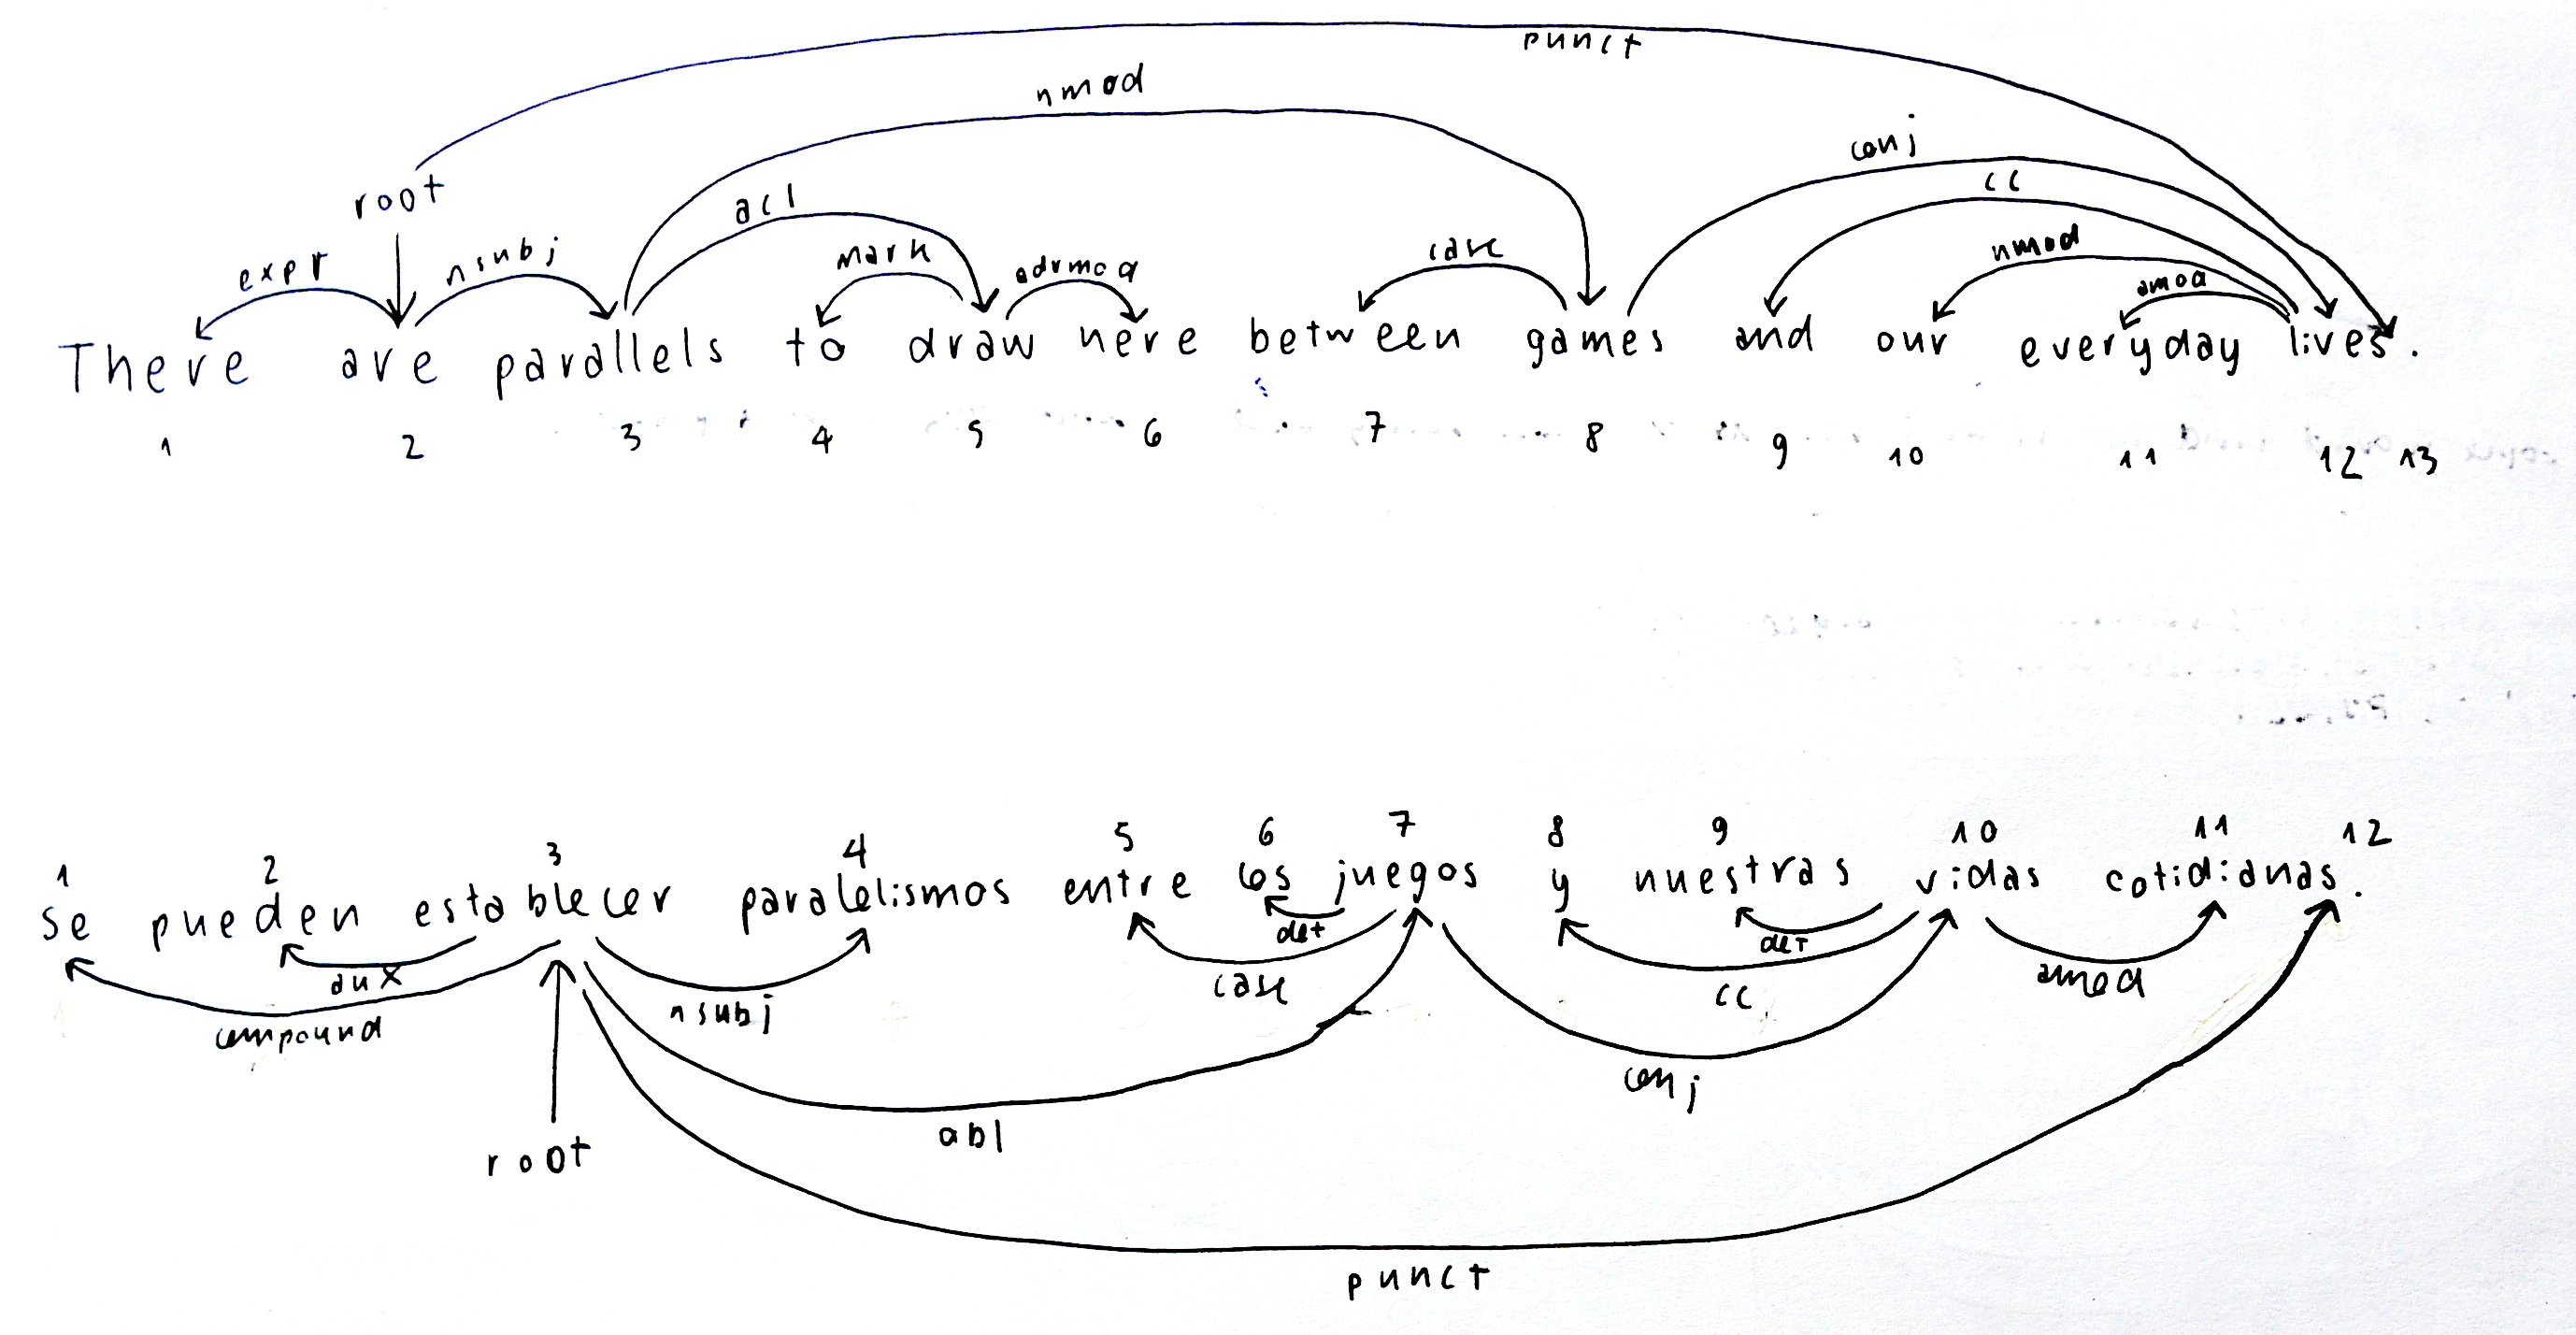 punct
nmod
conj
root acl cc
expr nsubj mark advmod case nmod
amod
There are parallels to draw here between games and our everyday lives.
1 2 3 4 5 6 7 8 9 10 11 12 13
1 2 3 4 5 6 7 8 9 10 11 12
se pueden establecer paralelismos entre los juegos y nuestras vidas cotidianas.
det det
aux case cc amod
compound nsubj
conj
root abl
punct